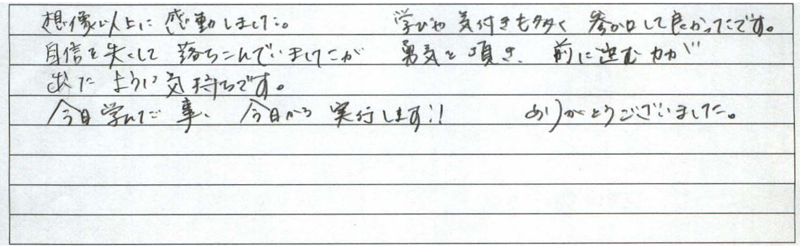 想像以上に感動しました。 学びや気付きも多く 参加して良かったです。
自信を失くして落ちこんでいましたが 勇気を頂き、前に進む力が
出たように気持ちです。
今日学んだ事、今日から実行します!! ありがとうございました。